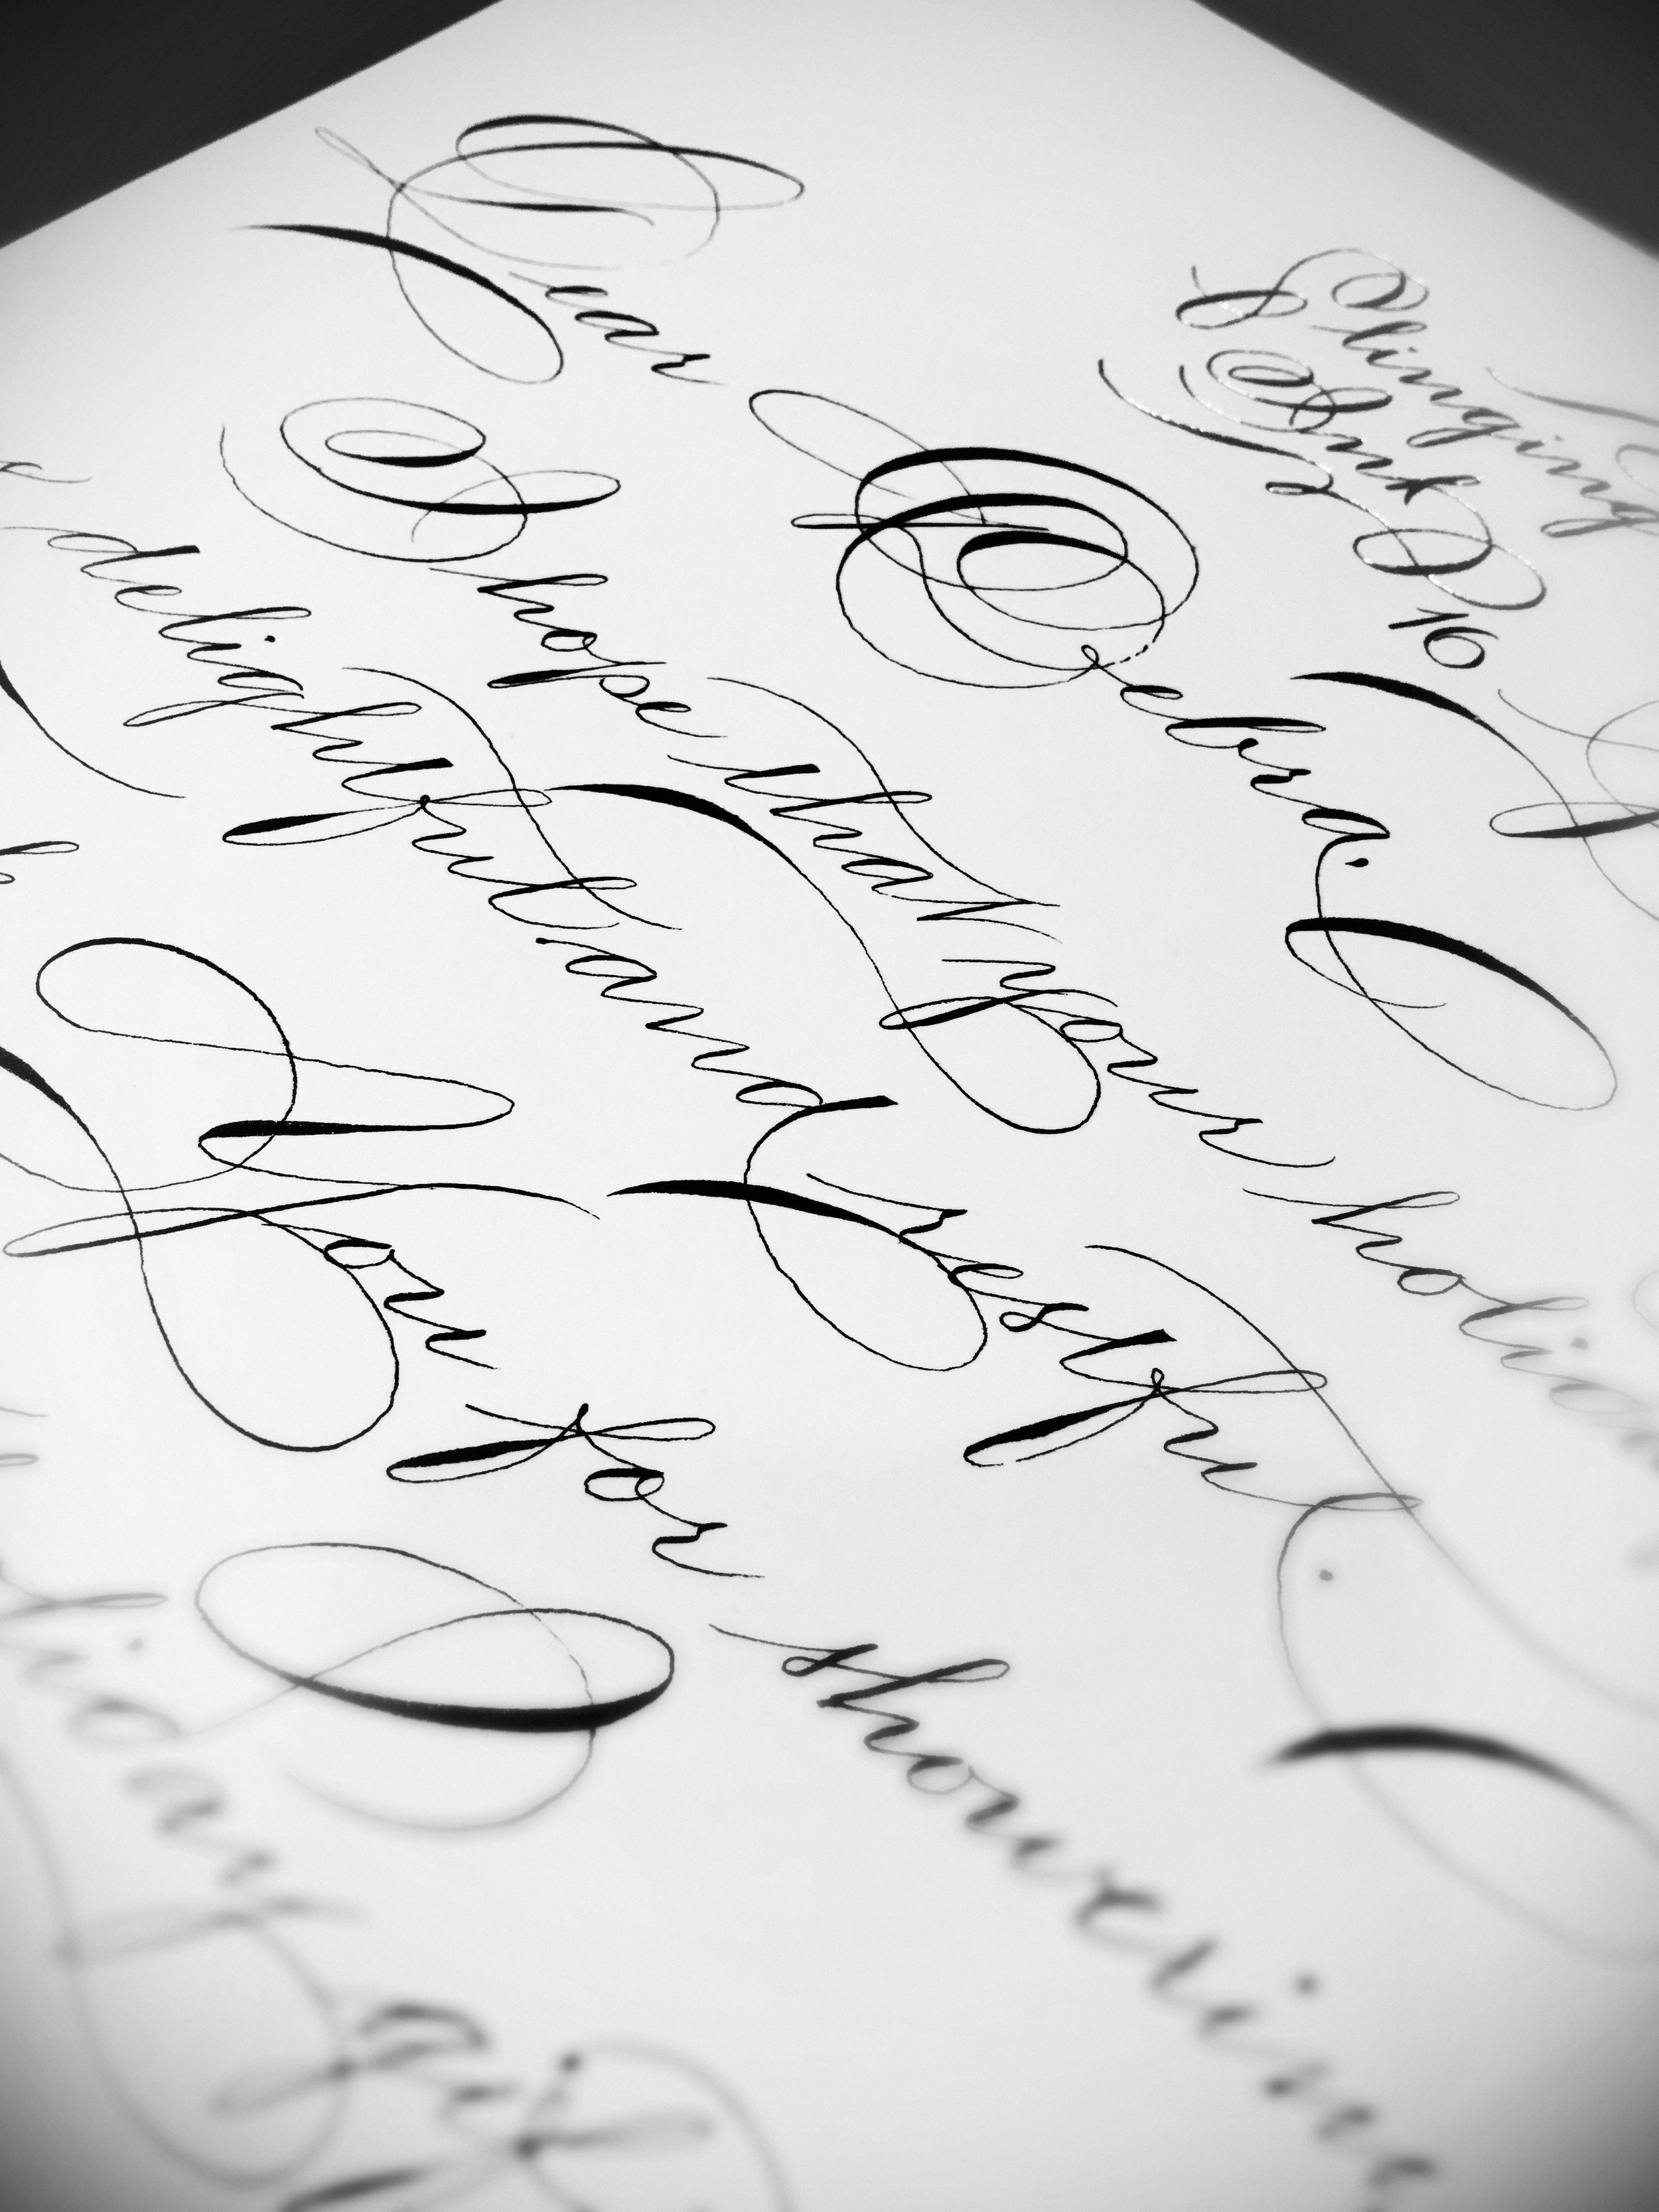 Slinging
Ink
16
Dear Debra.
I hope that your holida
delightful and restful.
You for showerin
liday gif